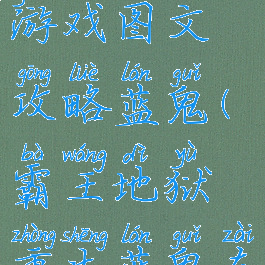 游戏图文
gōng lüè lán guǐ
攻略蓝鬼(
bà wáng dì yù
霸王地狱
zhòng shēng lán guǐ zài
重生蓝鬼在